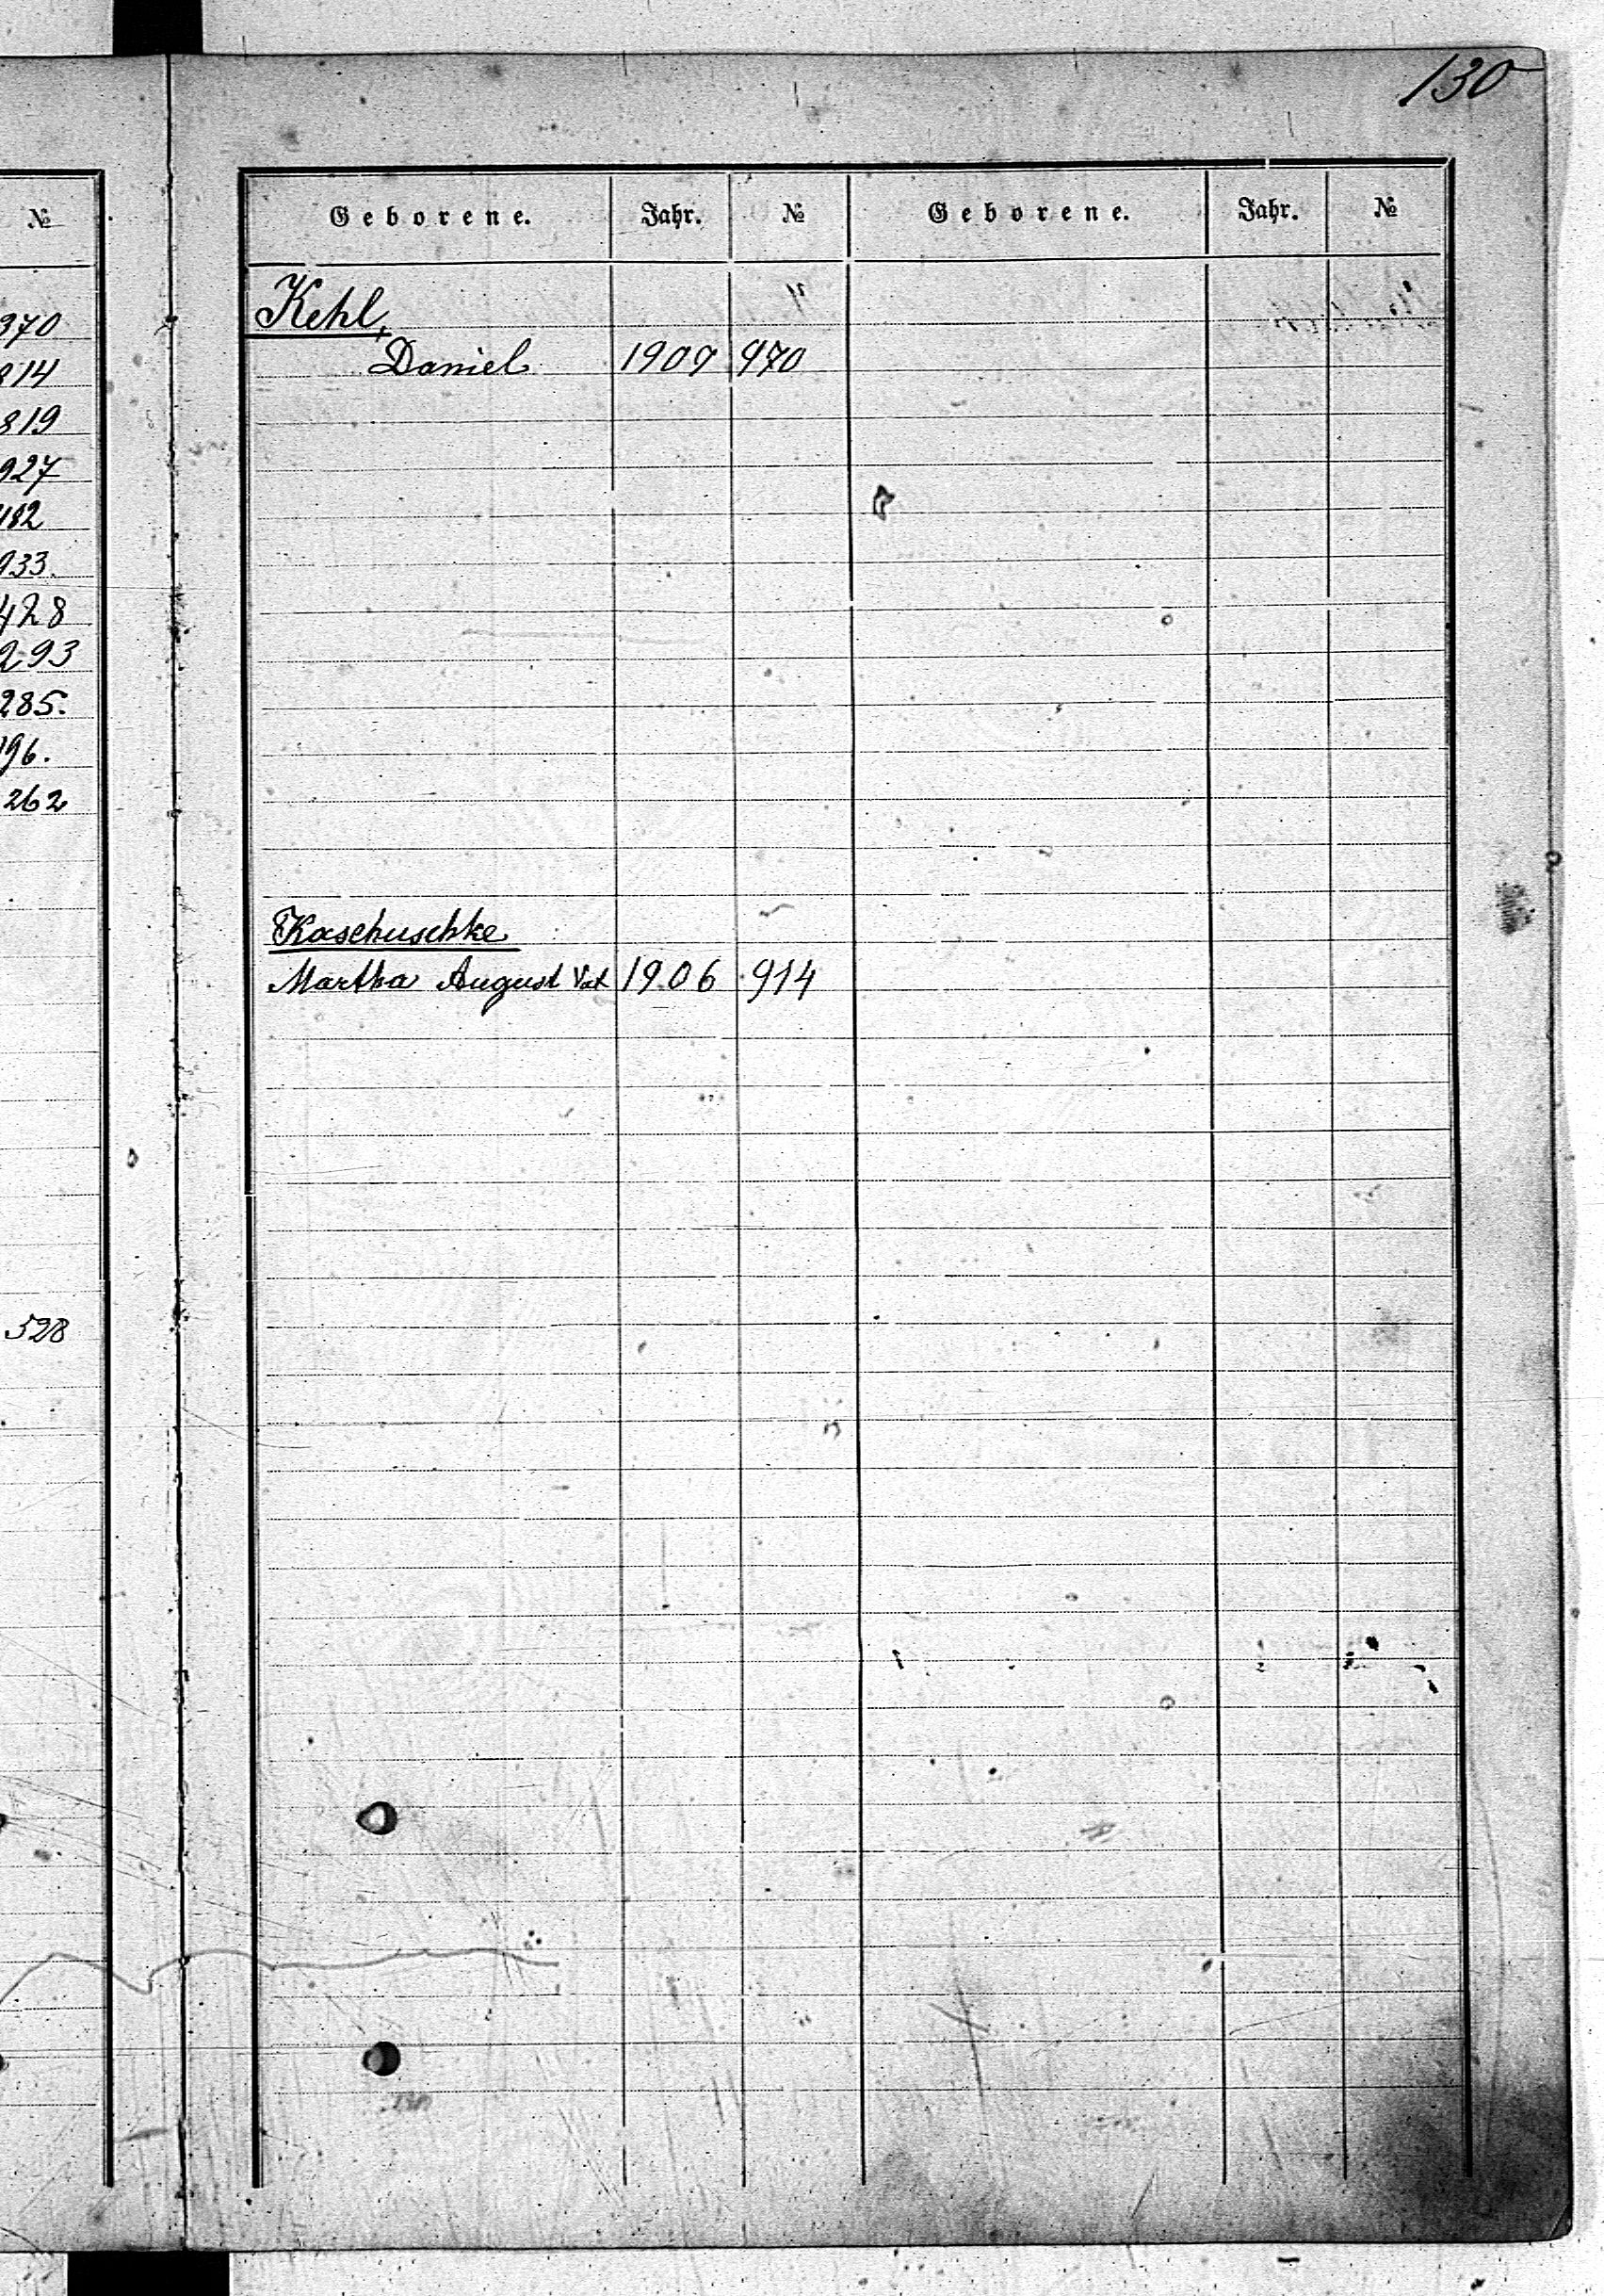 130
№
Geborene. Jahr. № Geborene. Jahr. №
370
814
819
927
182
933.
428
293
285.
196.
262
528
Kehl,
Daniel 1909 970
Kaschuschke
Martha August Vat 1906 914